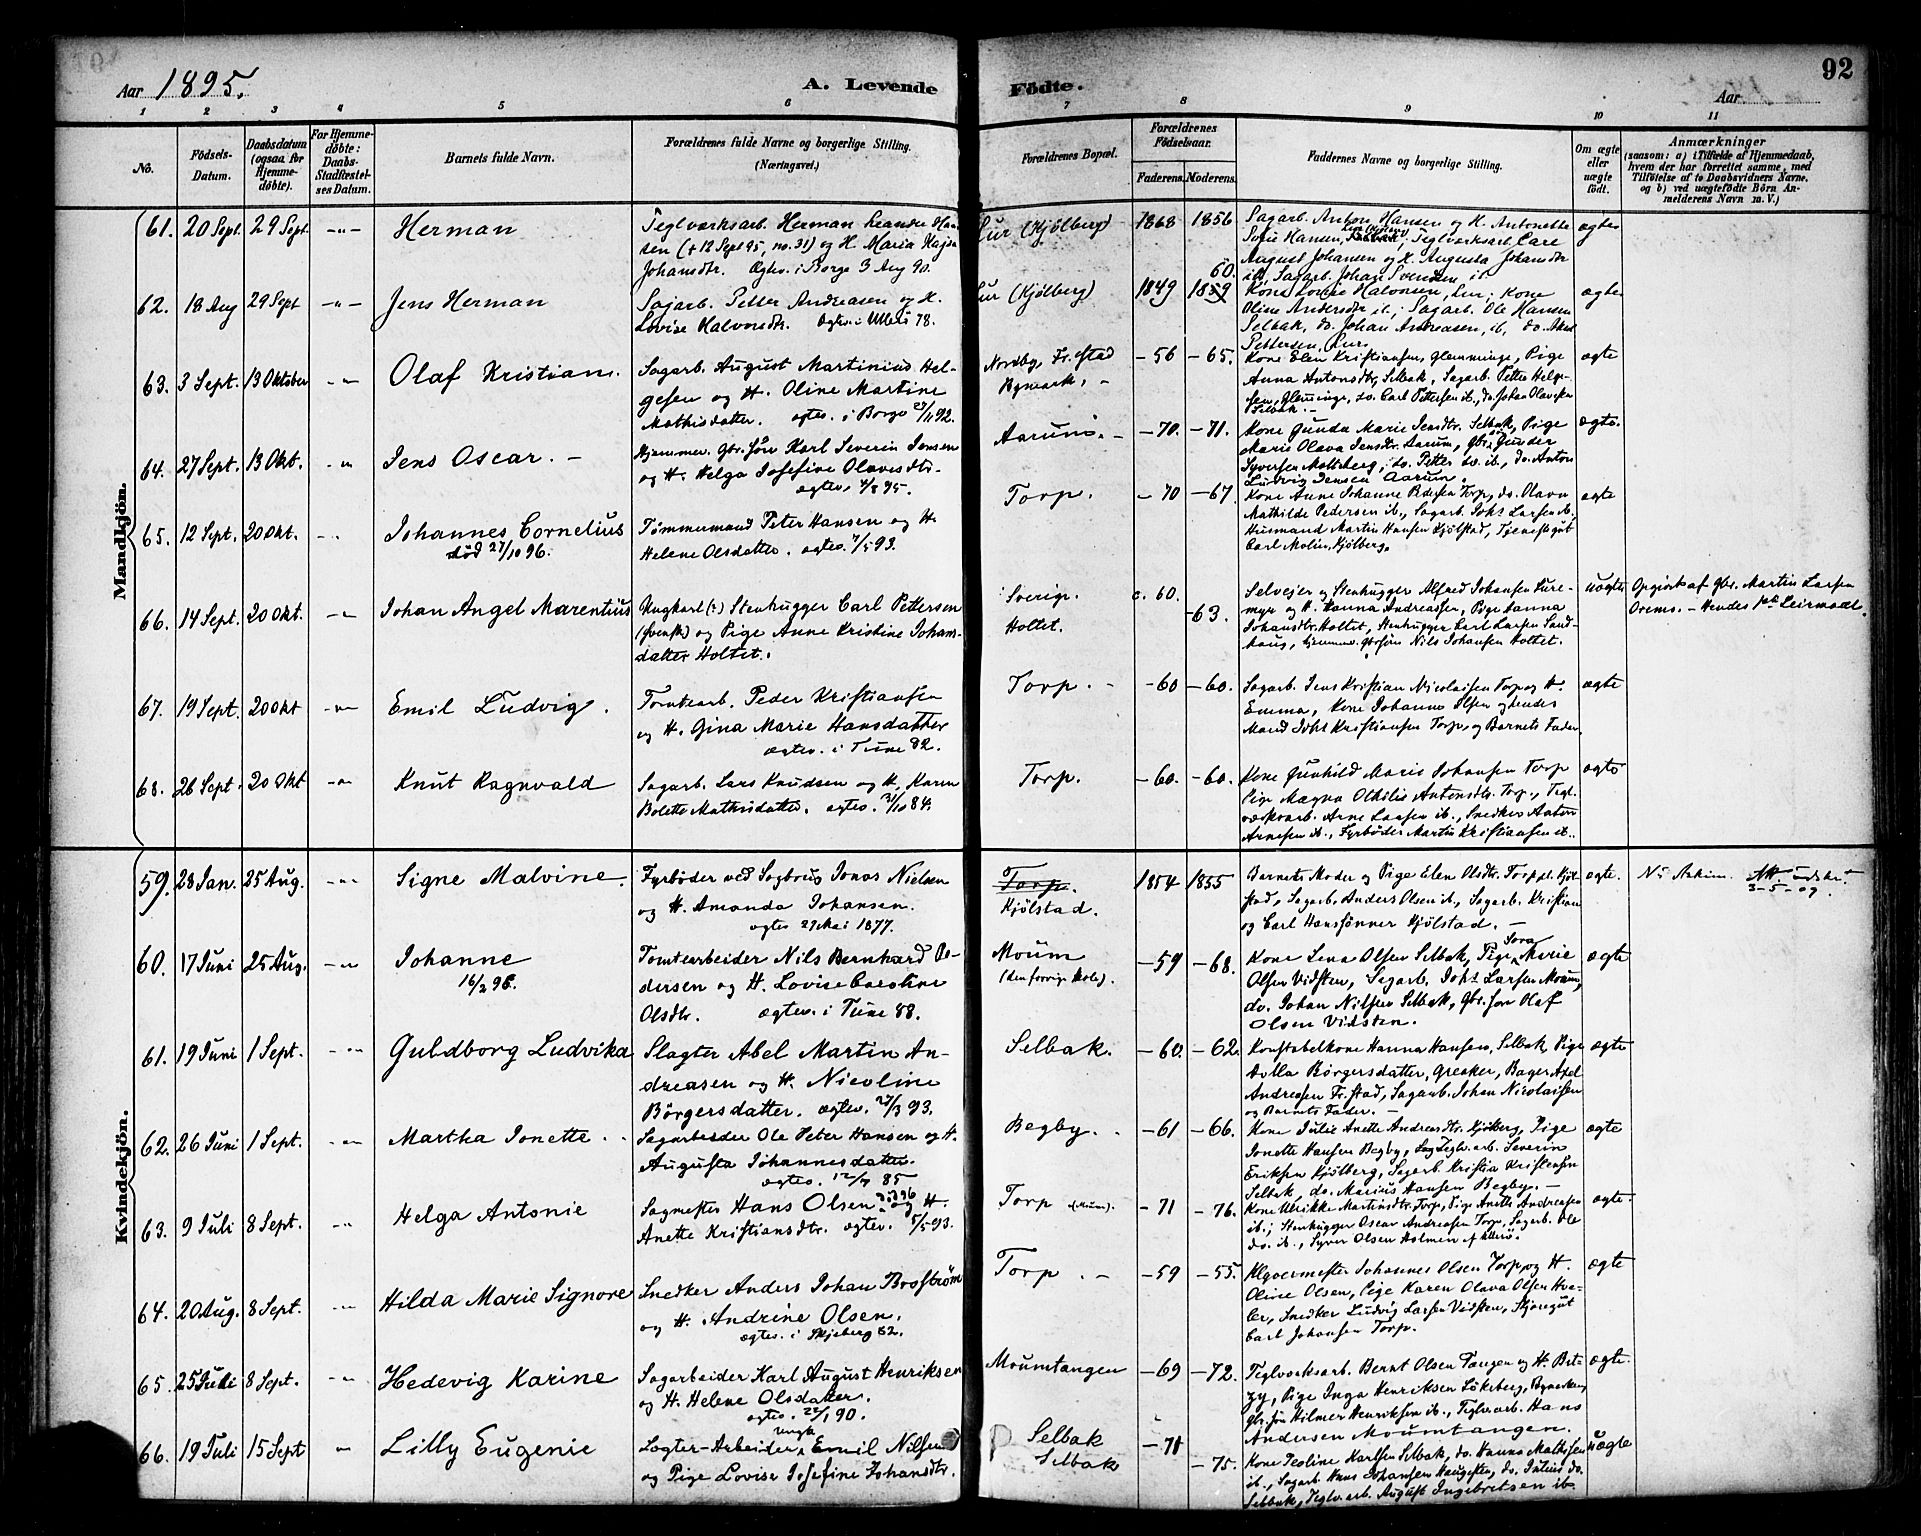 92
Aar 1895.
A. Levende Födte.
Aar
1 2 3 4 5 6 7 8 9 10 11
No.
Födsels-Datum.
Daabsdatum (ogsaa for Hjemmedöbte).
For Hjemmedöbte: Daabs-Stadfæstelses Datum.
Barnets fulde Navn.
Forældrenes fulde Navne og borgerlige Stilling. (Næringsvei.)
Forældrenes Bopæl.
Forældrenes Födselsaar.
Faderens. Moderens.
Faddernes Navne og borgerlige Stilling.
Om ægte eller uægte födt.
Anmærkninger
(saasom: a) i Tilfælde af Hjemmedaab, hvem der har forrettet samme, med Tilföielse af to Daabsvidners Navne, og b) ved uægtefödte Börn Anmelderens Navn m. V.)
Mandkjön.
61. 20 Sept. 29 Sept. -"- Herman
Teglværksarb. Herman Leander Han-
sen (+ 12 Sept 95, no. 31) og H. Maria Kajsa
Johansdtr. Ægtev. i Borge 3 Aug 90.
Lur (Kjölberg) 1868 1856
Sagarb. Anton Hansen og H. Antonette
Sofie Hansen, Teglværksarb. Carl
August Johansen og H. Augusta Johansdtr
ib, Sagarb. Johan Svendsen ib
ægte
62. 18 Aug 29 Sept -"- Jens Herman
Sagarb. Petter Andreasen og H.
Lovise Halvorsdtr. Ægtev. i Ullerö 78.
Lur (Kjölberg) 1849 1859 60.
Kone Lovise Halvorsen, Lur; Kone
Oline Andersdtr ib.; Sagarb. Ole Hansen
Selbak, do. Johan Andreasen, ib, do. Axel
Pettersen, Lur.
ægte
63. 3 Sept. 13 Oktober -"- Olaf Kristian.
Sagarb. August Martinius Hel-
gesen og H. Oline Martine
Mathisdatter. ægtev. i Borge 27/11 92.
Nordby, Fr.stad
Bymark. -
- 56 - 65.
Kone Elen Kristiansen, Glemminge, Pige
Anna Antonsdtr, Selbak, Sagarb. Petter Helge-
sen, Glemminge, do. Carl Pettersen ib., do. Johan Olavesen
Selbak. -
ægte
64. 27 Sept. 13 Okt. -"- Jens Oscar. -
Hjemmev. Gbr.sön Karl Severin Jensen
og H. Helga Josefine Olavesdtr.
ægtev. 4/8 95.
Aarum. - - 70. - 71.
Kone Gunda Marie Jensdtr. Selbak, Pige
Marie Olava Jensdtr. Aarum, Gbr. Gunder
Syversen Moltzberg, do. Petter do. ib., do. Anton
Ludvig Jensen Aarum.
ægte.
65. 12 Sept. 20 Okt. -"- Johannes Cornelius
död 27/10 96.
Tømmermand Peter Hansen og H.
Helene Olsdatter. ægtev. 7/5 93.
Torp. - 70 - 67.
Kone Anne Johanne Pedersen Torp, do. Olava
Mathilde Pedersen ib., Sagarb. Johs Larsen ib.
Husmand Martin Hansen Kjölstad, Tjenestegut
Carl Molin, Kjölberg.
ægte
66. 14 Sept. 20 Okt. -"- Johan Angel Marentius
Ungkarl (?) Stenhugger Carl Pettersen
(svensk) og Pige Anne Kristine Johans-
datter Holtet.
Sverige.
Holtet.
c. 60. - 63.
Selveier og Stenhugger Alfred Johansen Lure-
myr og H. Hanna Andreassen, Pige Hanna
Johansdtr. Holtet, Stenhugger Carl Larsen Sand-
haug, hjemmev. Gbr.sön Nils Johansen Holtet.
uægte
Opgivet af Gbr. Martin Larsen
Orems. - Hendes 1ste Leiermaal.
67. 19 Sept. 20 Okt -"- Emil Ludvig.
Tomtearb. Peder Kristiansen
og H. Gina Marie Hansdatter
ægtev. i Tune 82.
Torp. - - 60 - 60.
Sagarb. Jens Kristian Nicolaisen Torp og H.
Emma, Kone Johanne Olsen og hendes
Mand Johs Kristiansen Torp, og Barnets Fader.
ægte
68. 26 Sept. 20 Okt -"- Knut Ragnvald
Sagarb. Lars Knudsen og H. Karen
Bolette Mathisdatter. ægtev. 21/10 84.
Torp. - 60. - 60.
Kone Gunhild Marie Johansen Torp
Pige Magna Othilie Antonsdtr. Torp, Tegl-
værksarb. Arne Larsen ib., Snedker Anton
Arnesen ib., Fyrböder Martin Kristiansen ib.
ægte
Kvindekjön.
59. 28 Jan. 25 Aug. -"- Signe Malvine.
Fyrböder ved Sagbrug Jonas Nielsen
og H. Amanda Johansen.
ægtev 27 Mai 1877.
Torp.
Kjölstad.
1854 1855
Barnets Moder og Pige Elen Olsdtr. Torp pl. Kjöl-
stad, Sagarb. Anders Olsen ib., Sagarb. Kristian
og Carl Hanssönner Kjölstad. -
ægte.
N: Askim. Att. udskr. 3-5-09.
60. 17 Juni 25 Aug. -"- Johanne
16/2 96.
Tomtearbeider Nils Bernhard Pe-
dersen og H. Lovise Caroline
Olsdtr. ægtev. i Tune 88.
Moum
(den forrige Skole).
- 59 - 68.
Kone Lena Olsen Selbak, Pige Tora Marie
Olsen Vidsten, Sagarb. Johs Larsen Moum,
do. Johan Nilsen Selbak, Gbr.sön Olaf
Olsen Vidsten.
ægte
61. 19 Juni 1 Sept. -"- Guldborg Ludvika
Slagter Abel Martin An-
dreasen og H. Nicoline
Börgersdatter. ægtev. 27/3 93.
Selbak. - 60. - 62.
Konstabelkone Hanna Hansen, Selbak, Pige
Aolla Börgersdatter, Greaker, Bager Axel
Andresen Fr.stad, Sagarb. Johan Nicolaisen
og Barnets Fader. -
ægte
62. 26 Juni 1 Sept. -"- Martha Jonette.
Sagarbeider Ole Peter Hansen og H.
Augusta Johannesdatter.
ægtev. 12/7 85
Begby. - 61 - 66.
Kone Julie Anette Andreasdtr. Kjölberg, Pige
Jonette Hansen Begby, Teglv.arb. Severin
Eriksen Kjölberg, Sagarb. Kristian Kristensen
Selbak, do. Marius Hansen Begby. -
ægte
63. 9 Juli 8 Sept. -"- Helga Antonie
Sagmester Hans Olsen og H.
Anette Kristiansdtr. ægtev. 5/5 93.
Torp (Moum). - 71 - 76.
Kone Ulrikke Martinsdtr. Torp, Pige Anette Andreasen
ib.; Stenhugger Oscar Andreasen Torp, Sagarb. Ole
do. ib., Syver Olsen Holmen af Ullerö.
ægte.
64. 20 Aug. 8 Sept. -"- Hilda Marie Signore
Snedker Anders Johan Broström
og H. Andrine Olsen.
ægtev. i Skjeberg 82.
Torp. - - 59 - 55.
Klavermester Johannes Olsen Torp og H.
Oline Olsen, Pige Karen Olava Olsen Hva-
ler, Snedker Ludvig Larsen Vidsten, Skjoregut
Carl Johansen Torp.
ægte
65. 25 Juli 8 Sept. -"- Hedevig Karine
Sagarbeider Karl August Henriksen
og H. Helene Olsdatter.
ægtev. 22/1 90.
Moumtangen - 69 - 72.
Teglværksarb. Bernt Olsen Tangen og H. Bet-
zy, Pige Inga Henriksen Lökeberg,
Gbr.sön Hilmer Henriksen ib., Teglv.arb. Hans
Andersen Moumtangen.
ægte.
66. 19 Juli 15 Sept " Lilly Eugenie
Logter-Arbeider, Ungk. Emil Nilsen
og Pige Lovise Josefine Johansdtr.
Selbak
Selbak
- 71 - 75.
Kone Peoline Karlsen Selbak, do. Hanna Mathisen
ib., Sagarb. Hans Johansen Haugesten, do. Julius do.
Selbak, Teglv.arb. August Ingebretsen ib.
uægte